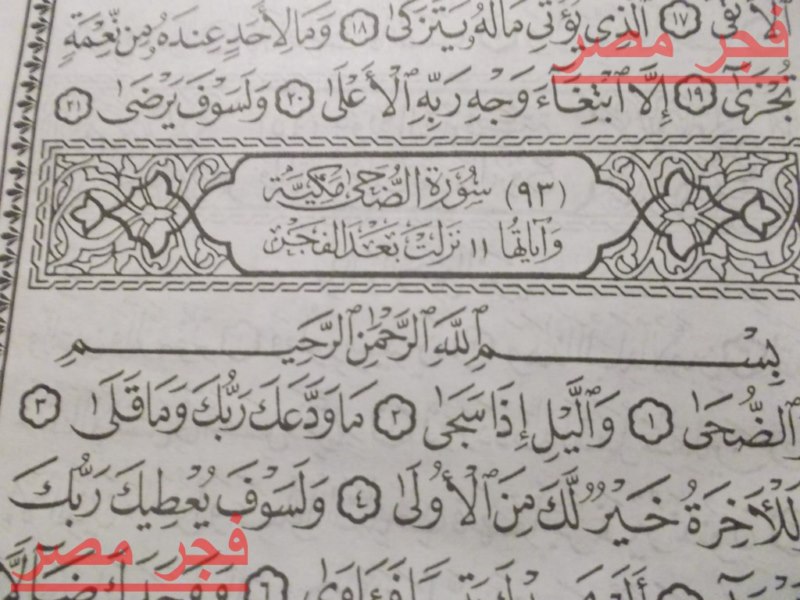 ٱلْأَتْقَى ١٧ ٱلَّذِى يُؤْتِى مَالَهُۥ يَتَزَكَّىٰ ١٨ وَمَا لِأَحَدٍ عِندَهُۥ مِن نِّعْمَةٍ
فجر مصر
تُجْزَىٰٓ ١٩ إِلَّا ٱبْتِغَآءَ وَجْهِ رَبِّهِ ٱلْأَعْلَىٰ ٢٠ وَلَسَوْفَ يَرْضَىٰ ٢١
(٩٣) سُورَةُ الضُّحَىٰ مَكِيَّة
وَآيَاتُهَا ١١ نَزَلَتْ بَعْدَ الفَجْرِ
بِسْمِ ٱللَّهِ ٱلرَّحْمَٰنِ ٱلرَّحِيمِ
ٱلضُّحَىٰ ١ وَٱلَّيْلِ إِذَا سَجَىٰ ٢ مَا وَدَّعَكَ رَبُّكَ وَمَا قَلَىٰ ٣
لَلْأٓخِرَةُ خَيْرٌ لَّكَ مِنَ ٱلْأُولَىٰ ٤ وَلَسَوْفَ يُعْطِيكَ رَبُّكَ
فجر مصر